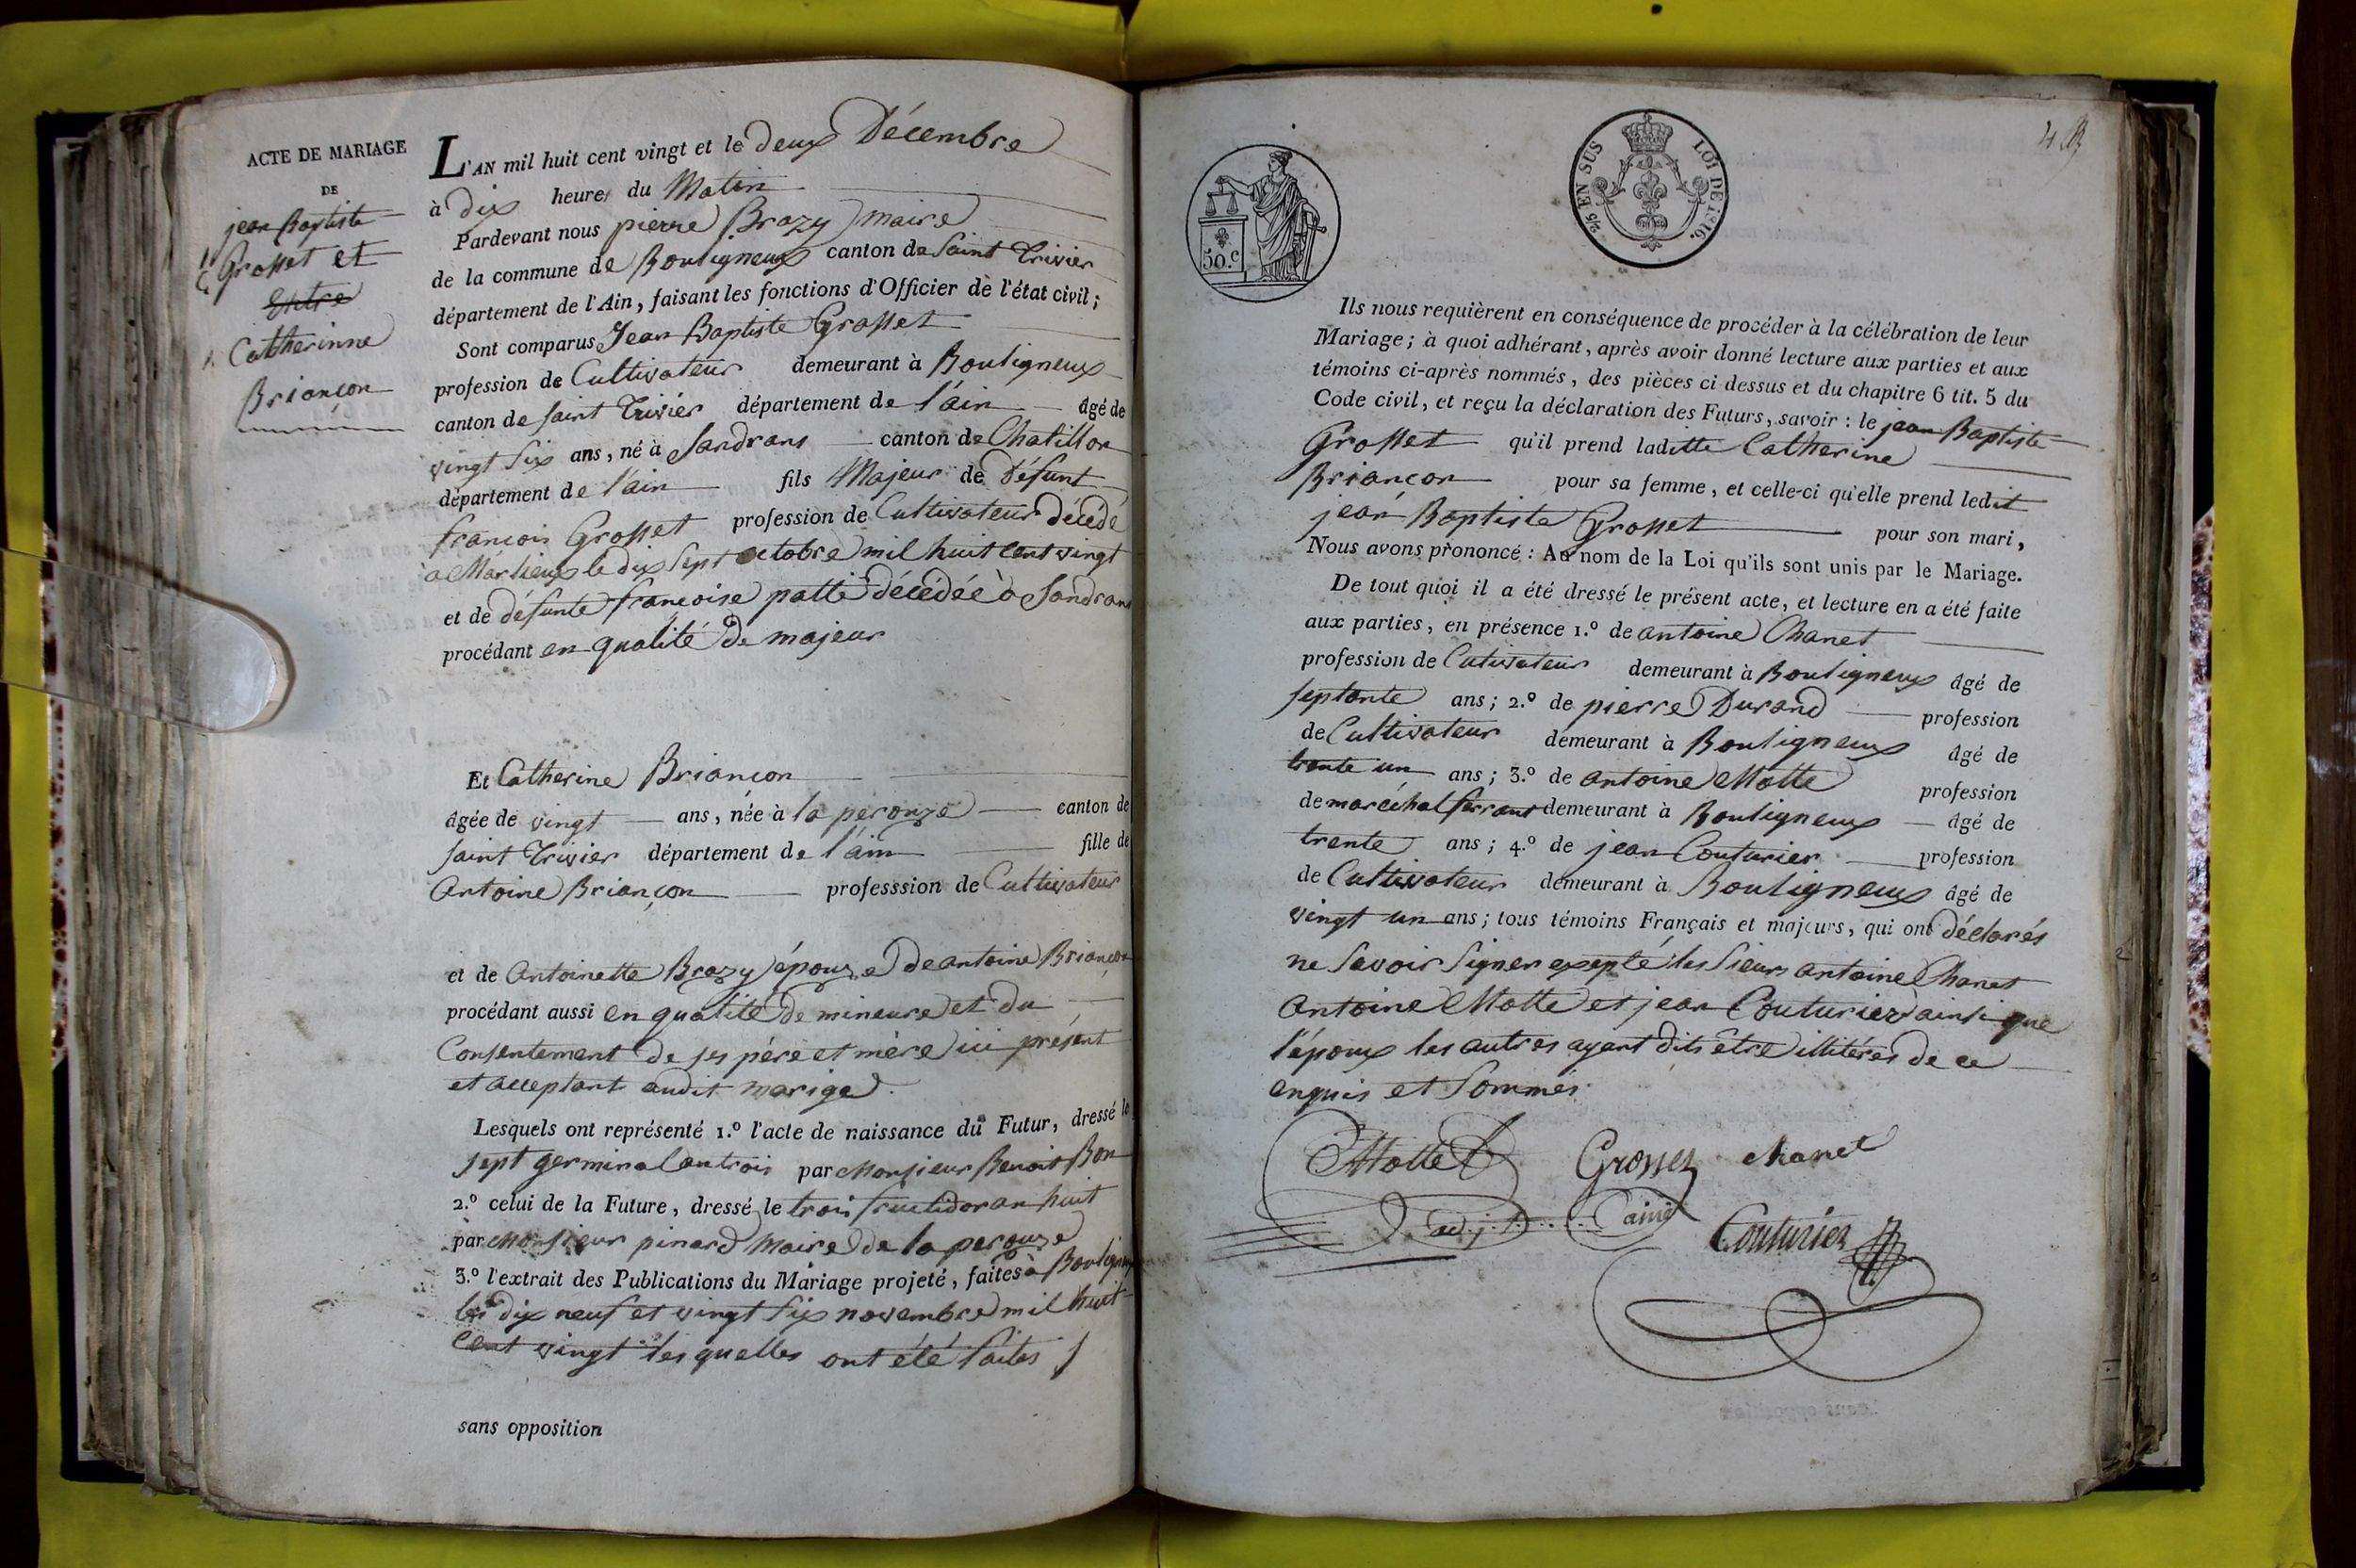 ACTE DE MARIAGE
DE
jean Baptiste
Grosset et
Entre
Catherinne
Briançon
L'AN mil huit cent vingt et le deux Décembre
à dix heures du Matin
Pardevant nous pierre Brazy maire
de la commune de Bouligneux canton de Saint Trivier
département de l'Ain, faisant les fonctions d'Officier de l'état civil;
Sont comparus Jean Baptiste Grosset
profession de Cultivateur demeurant à Bouligneux
canton de saint Trivier département de l'ain âgé de
vingt six ans, né à Sandrans canton de Chatillon
département de l'ain fils Majeur de Défunt
françois Grosset profession de Cultivateur décédé
a Marlieux le dix sept octobre mil huit cent vingt
et de défunte françoise patte décédée à Sandrans
procédant en qualité de majeur
Et Catherine Briançon
âgée de vingt ans, née à la perouze canton de
saint Trivier département de l'ain fille de
Antoine Briançon professsion de Cultivateur
et de Antoinette Brazy épouze de antoine Briançon
procédant aussi en qualité de mineure et du
Consentement de ses père et mère ici présent
et acceptant audit mariage.
Lesquels ont représenté 1.º l'acte de naissance du Futur, dressé le
sept germinal an trois par Monsieur Benoit Bon
2.º celui de la Future, dressé le trois fructidor an huit
par Monsieur pinard Maire de la perouze
3.º l'extrait des Publications du Mariage projeté, faites à
les dix neuf et vingt six novembre mil huit
Cent vingt les quelles ont été faites
sans opposition
50.c
2/5 EN SUS LOI DE 1816.
Ils nous requièrent en conséquence de procéder à la célébration de leur
Mariage; à quoi adhérant, après avoir donné lecture aux parties et aux
témoins ci-après nommés, des pièces ci dessus et du chapitre 6 tit. 5 du
Code civil, et reçu la déclaration des Futurs, savoir: le jean Baptiste
Grosset qu'il prend laditte Catherine
Briançon pour sa femme, et celle-ci qu'elle prend ledit
jean Baptiste Grosset pour son mari,
Nous avons prononcé: Au nom de la Loi qu'ils sont unis par le Mariage.
De tout quoi il a été dressé le présent acte, et lecture en a été faite
aux parties, en présence 1.º de antoine Chanet
profession de Cutivateur demeurant à Bouligneux âgé de
septante ans; 2.º de pierre Durand profession
de Cultivateur demeurant à Bouligneux âgé de
trente un ans; 3.º de antoine Motte profession
de maréchal ferrant demeurant à Bouligneux âgé de
trente ans; 4.º de jean Couturier profession
de Cultivateur demeurant à Bouligneux âgé de
vingt un ans; tous témoins Français et majeurs, qui ont déclarés
ne Savoir Signer exepté les Sieurs antoine Chanet
antoine Motte et jean Couturier ainsi que
l'époux les autres ayant dits être illitérés de ce
enquis et Sommés
Motte Grosset chanet
adj.t ainé
Couturier